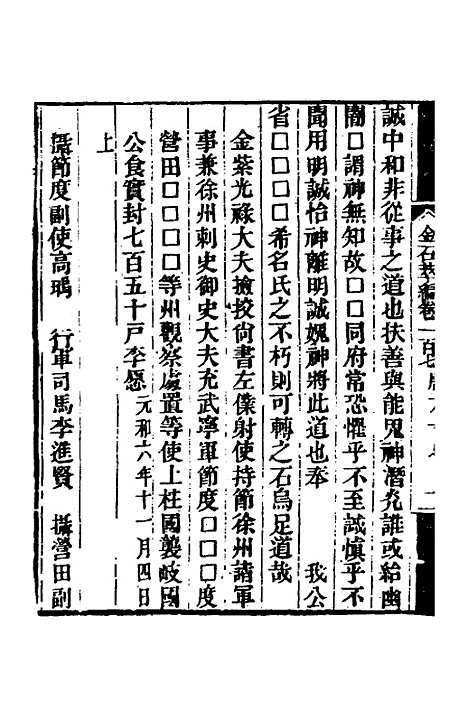 金石萃編卷一百七 唐六十七 二
誠中和非從事之道也扶善與能鬼神潛允誰或紿幽
闇□謂神無知故□□同府常恐懼乎不至誠慎乎不
聞用明誠怡神離明誠媿神將此道也奉　　我公
省□□□□希名氏之不朽則可轉之石烏足道哉
金紫光祿大夫檢挍尙書左僕射使持節徐州諸軍
事兼徐州刺史御史大夫充武寧軍節度□□□度
營田□□□□等州觀察處置等使上柱國襲岐國
公食實封七百五十戸李愿 元和六年十一月四日
上
攝節度副使高瑀　行軍司馬李進賢　攝營田副